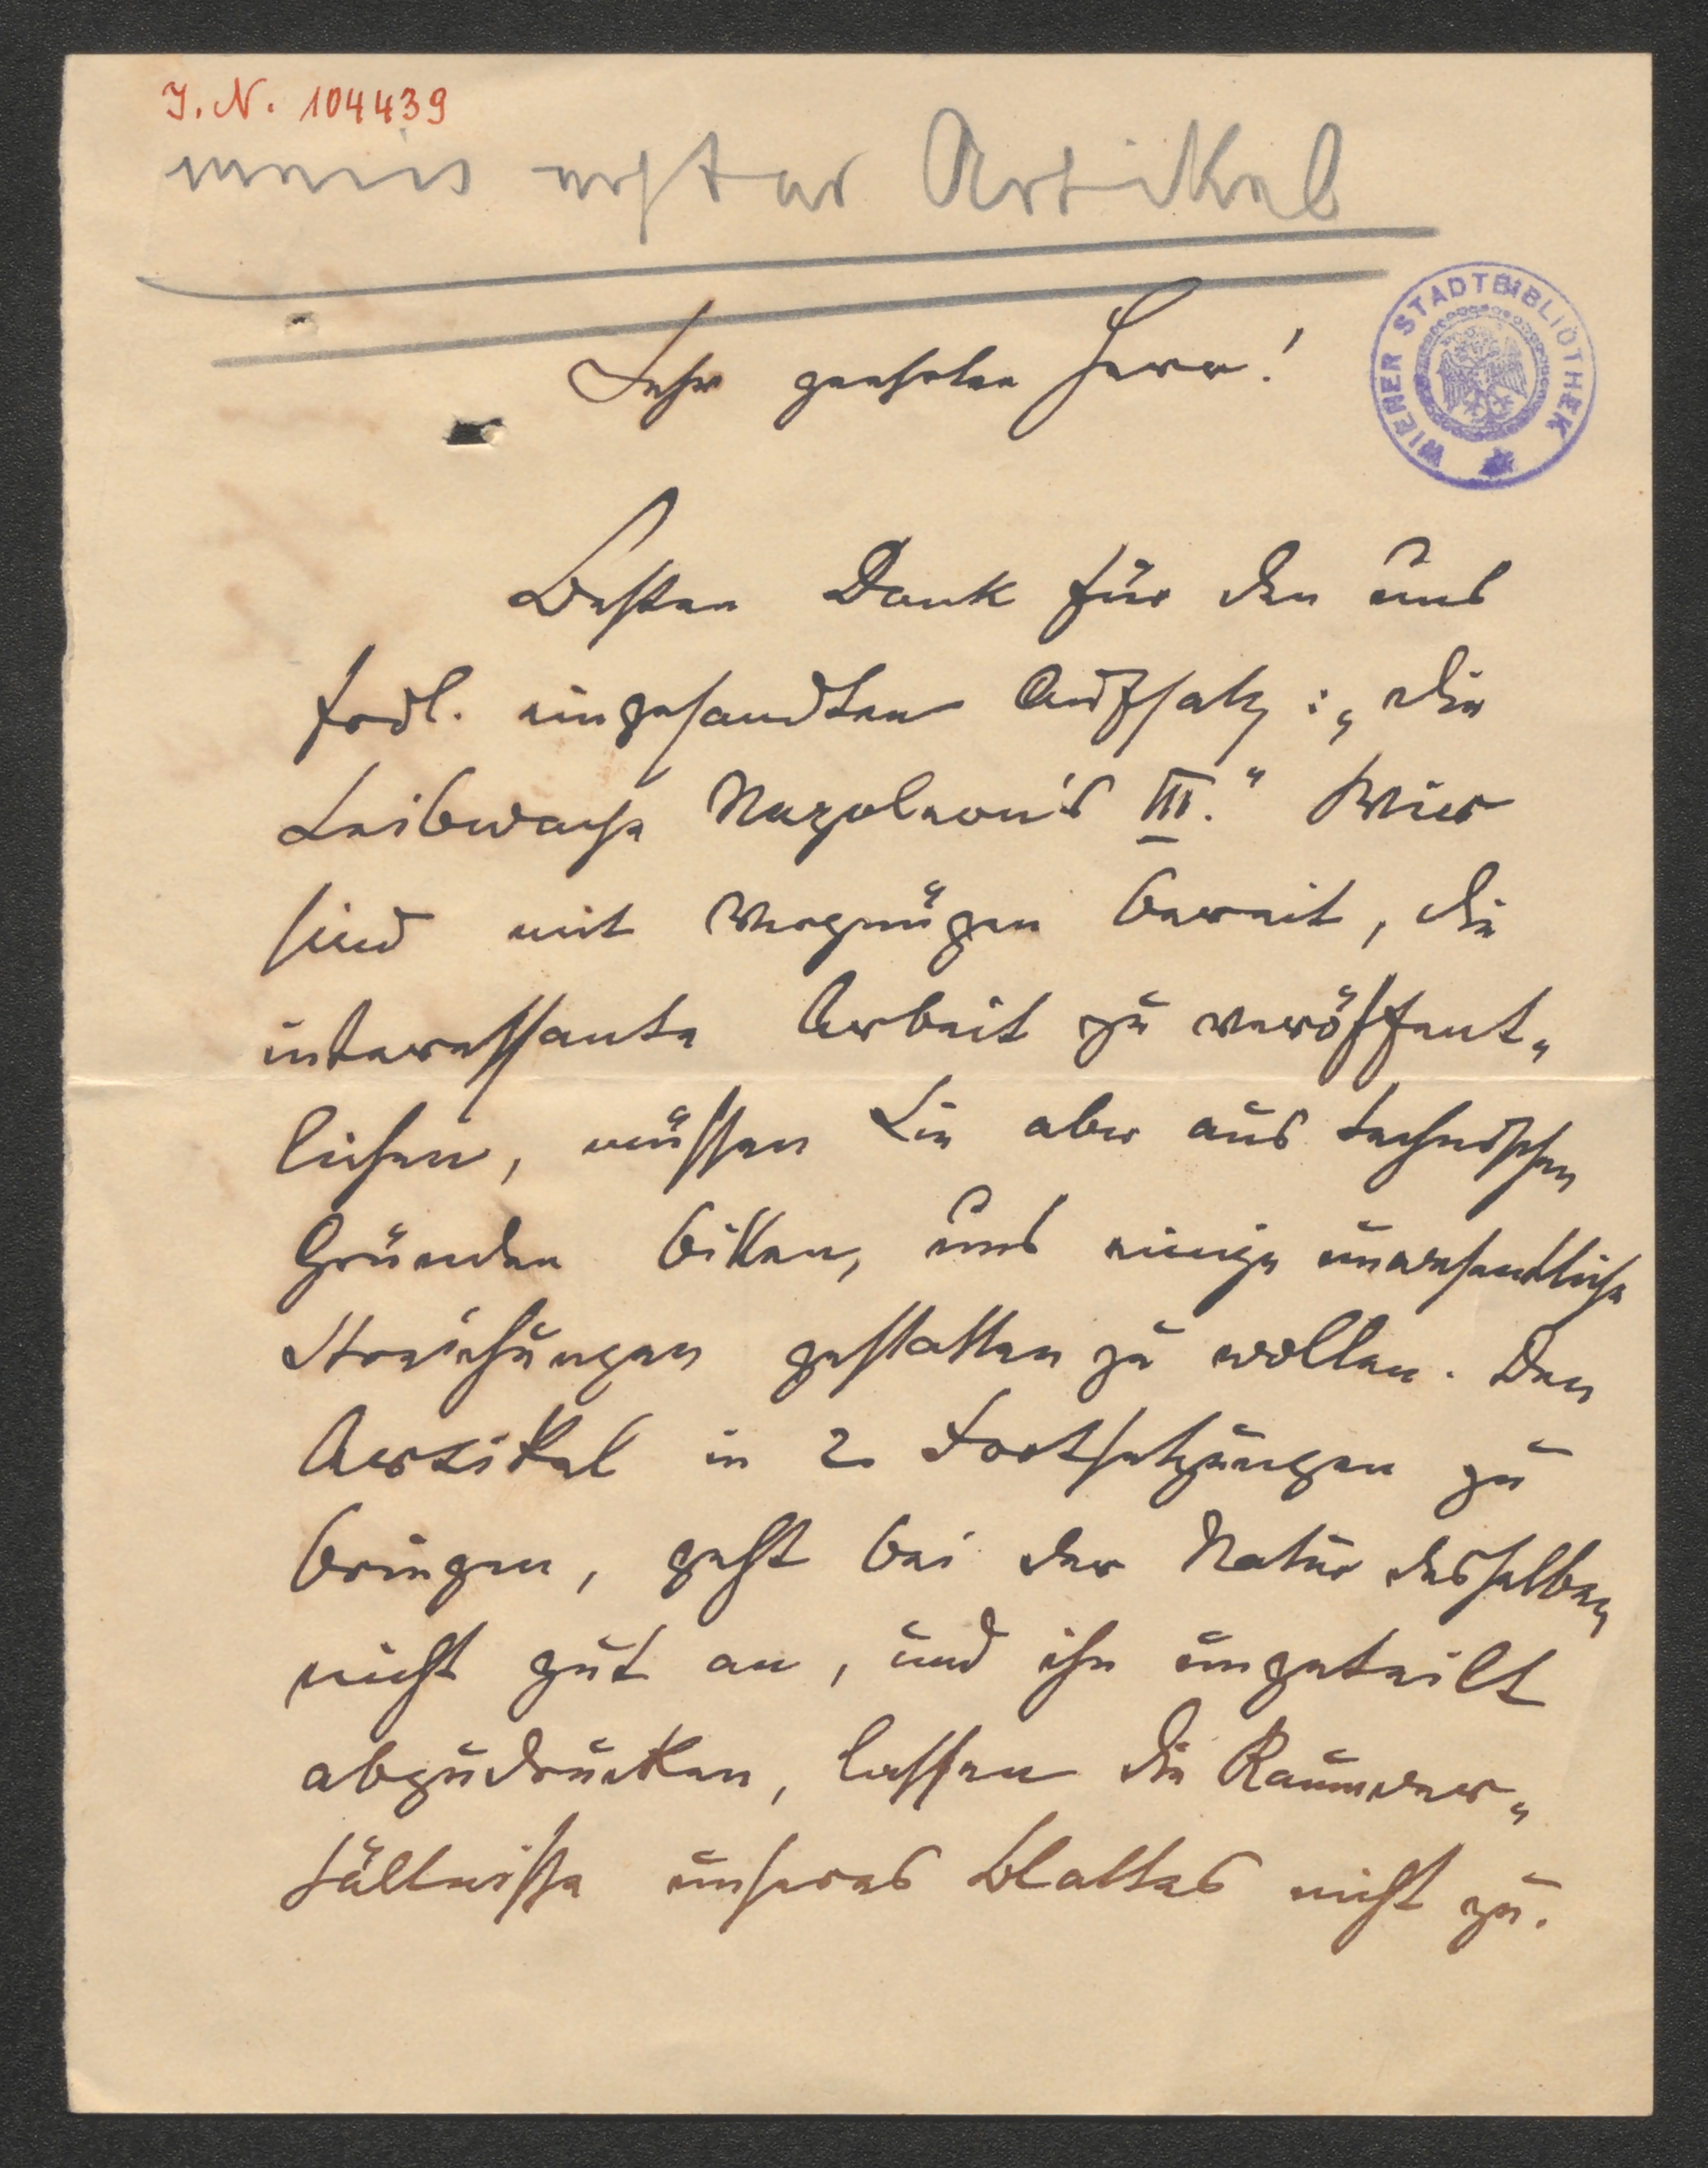 J. N. 104439
mein erster Artikel
WIENER STADTBIBLIOTHEK
Sehr geehrter Herr!
Besten Dank für den uns
frdl. eingesandten Aufsatz: „Die
Leibwache Napoleon's III.“ Wir
sind mit Vergnügen bereit, die
interessante Arbeit zu veröffent„
lichen, müssen Sie aber aus technischen
Gründen bitten, uns einige unwesentliche
Streichungen gestatten zu wollen. Den
Artikel in 2 Fortsetzungen zu
bringen, geht bei der Natur desselben
nicht gut an, und ihn ungeteilt
abzudrucken, lassen die Raumver„
hältnisse unseres Blattes nicht zu.